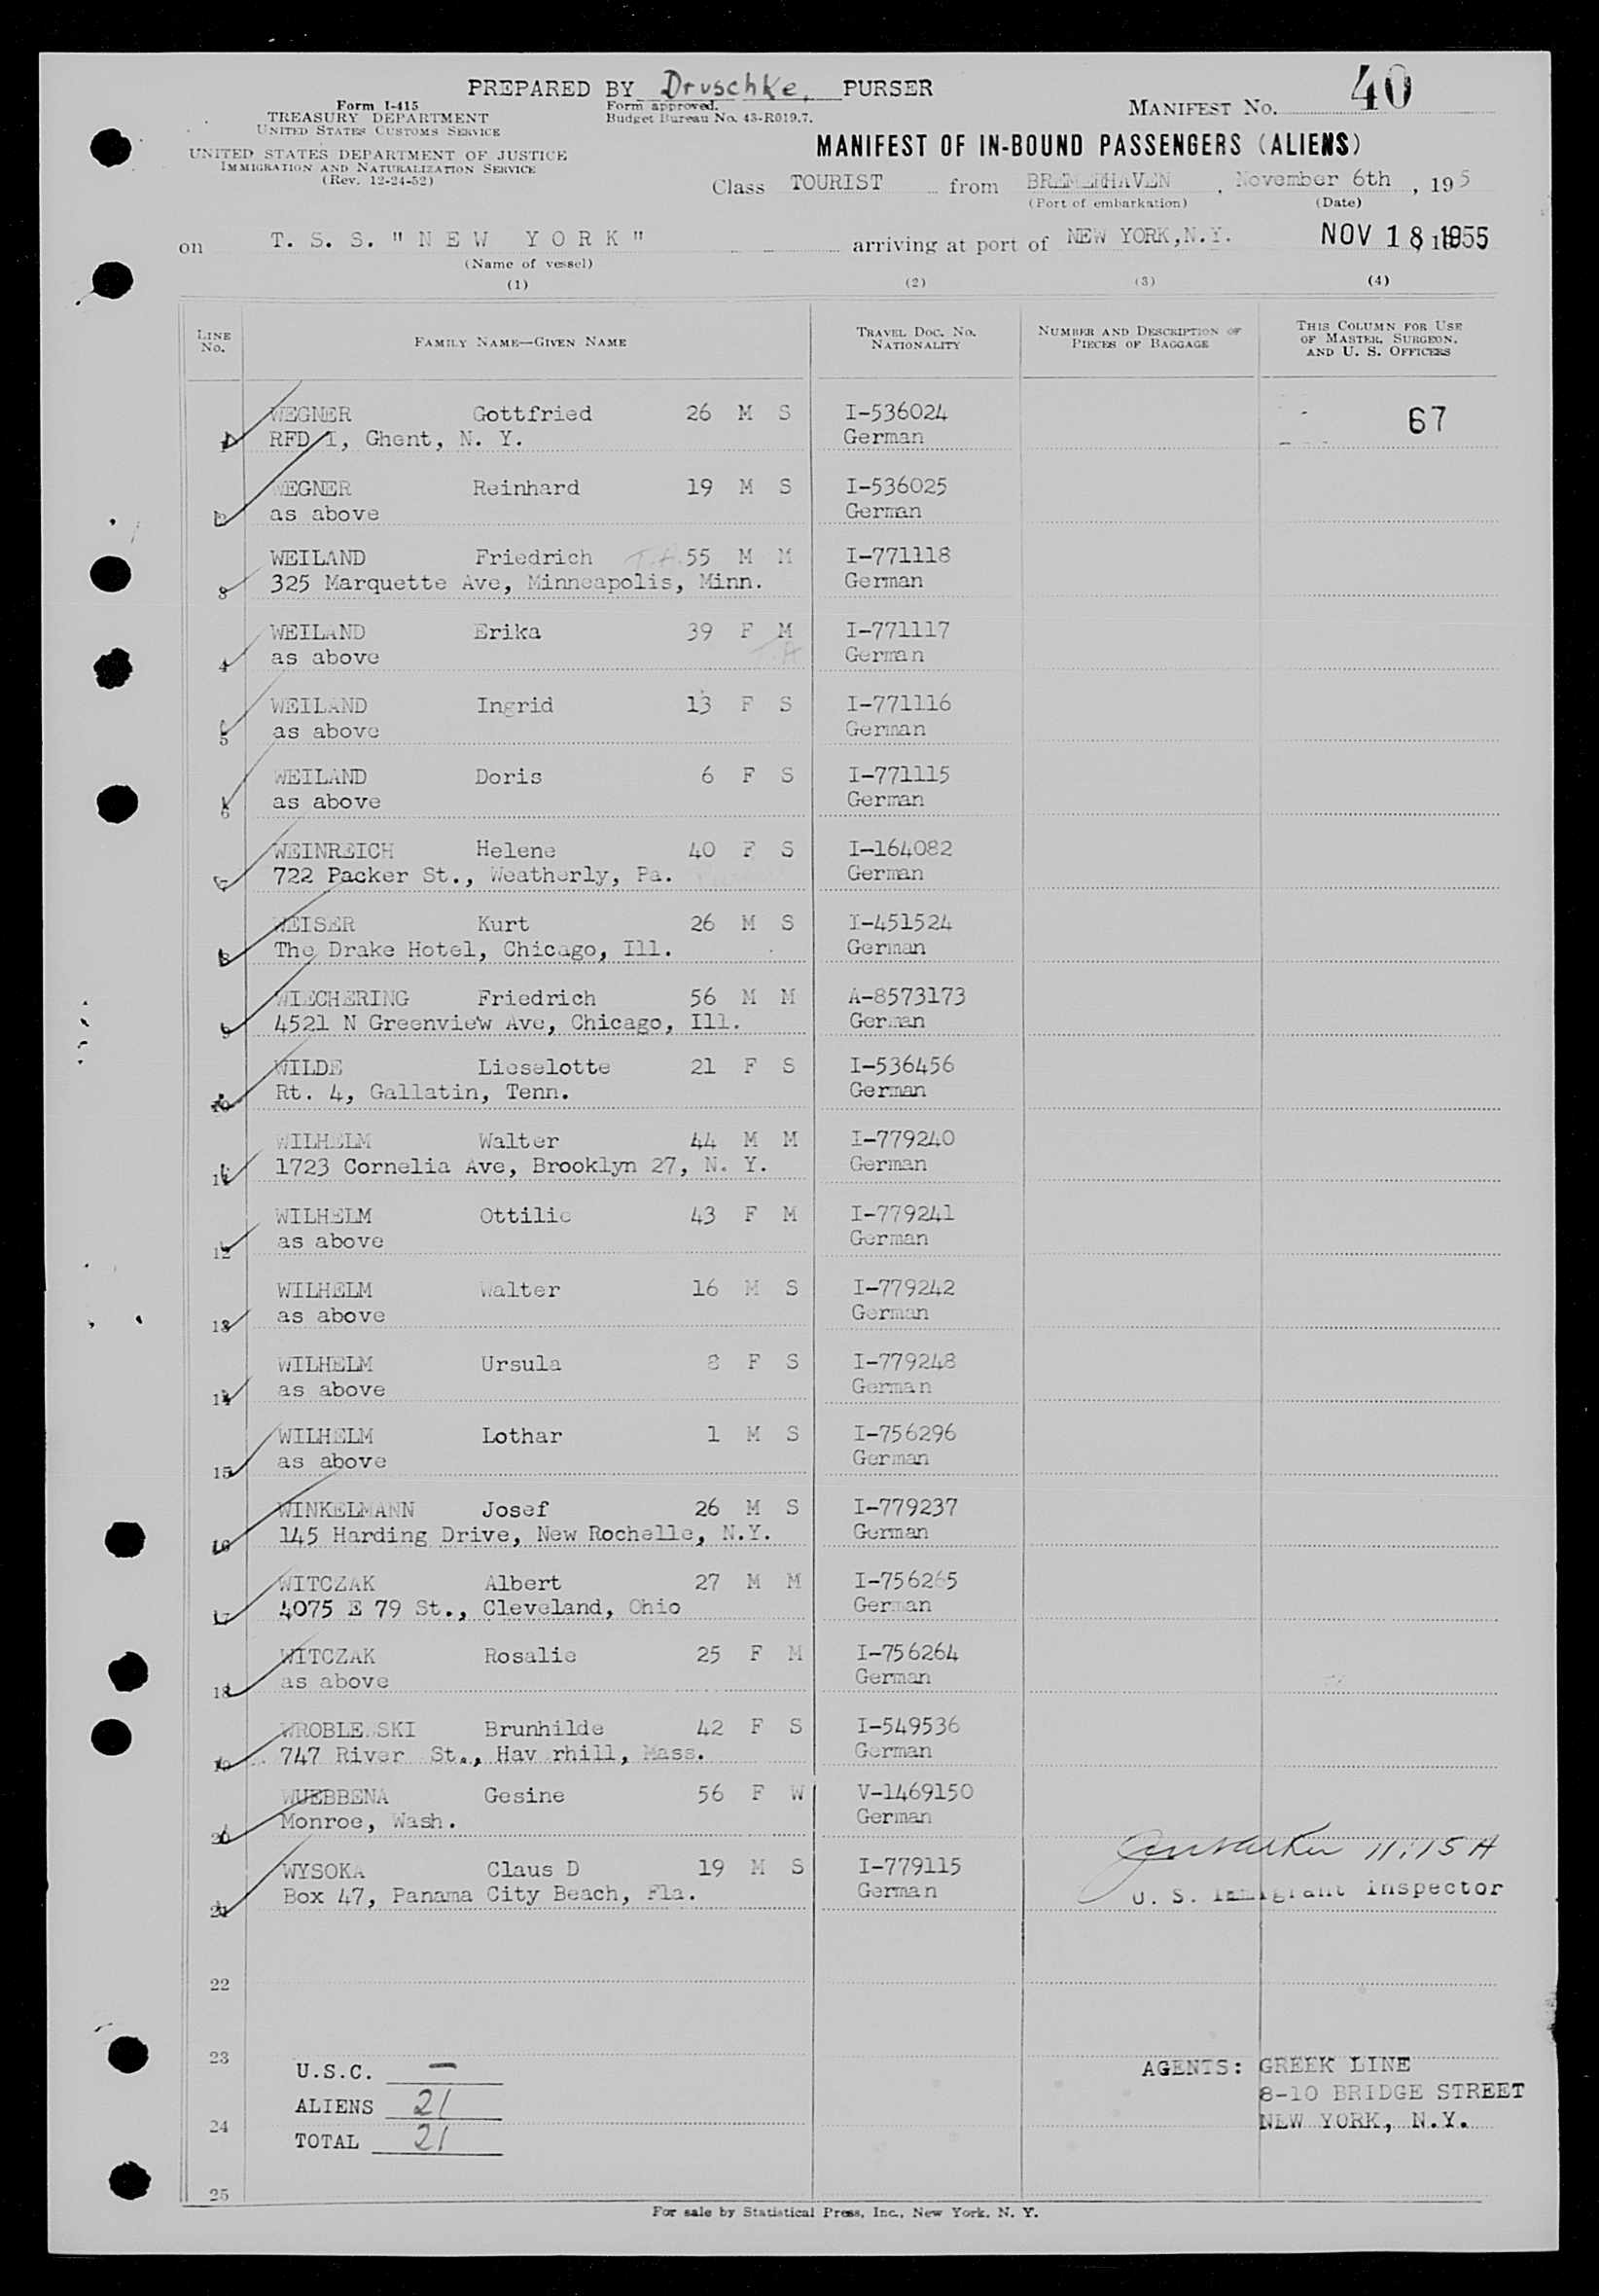 PREPARED BY Druschke, PURSER
Form I-415
TREASURY DEPARTMENT
UNITED STATES CUSTOMS SERVICE
Form approved.
Budget Bureau No. 43-R019.7.
MANIFEST No. 40
UNITED STATES DEPARTMENT OF JUSTICE
IMMIGRATION AND NATURALIZATION SERVICE
(Rev. 12-24-52)
MANIFEST OF IN-BOUND PASSENGERS (ALIENS)
Class TOURIST from BREMERHAVEN, November 6th, 195
(Port of embarkation) (Date)
on T. S. S. "NEW YORK" arriving at port of NEW YORK,N.Y. NOV 18 1955
(Name of vessel)
(1) (2) (3) (4)
LINE No. FAMILY NAME—GIVEN NAME TRAVEL DOC. NO. NATIONALITY NUMBER AND DESCRIPTION OF PIECES OF BAGGAGE THIS COLUMN FOR USE OF MASTER, SURGEON, AND U. S. OFFICERS
WEGNER Gottfried 26 M S I-536024 67
1 RFD 1, Ghent, N. Y. German
WEGNER Reinhard 19 M S I-536025
2 as above German
WEILAND Friedrich T.A. 55 M M I-771118
3 325 Marquette Ave, Minneapolis, Minn. German
WEILAND Erika 39 F M I-771117
4 as above T.A German
WEILAND Ingrid 13 F S I-771116
5 as above German
WEILAND Doris 6 F S I-771115
6 as above German
WEINREICH Helene 40 F S I-164082
7 722 Packer St., Weatherly, Pa. German
WEISER Kurt 26 M S I-451524
8 The Drake Hotel, Chicago, Ill. German
WIECHERING Friedrich 56 M M A-8573173
9 4521 N Greenview Ave, Chicago, Ill. German
WILDE Lieselotte 21 F S I-536456
10 Rt. 4, Gallatin, Tenn. German
WILHELM Walter 44 M M I-779240
11 1723 Cornelia Ave, Brooklyn 27, N. Y. German
WILHELM Ottilie 43 F M I-779241
12 as above German
WILHELM Walter 16 M S I-779242
13 as above German
WILHELM Ursula 8 F S I-779248
14 as above German
WILHELM Lothar 1 M S I-756296
15 as above German
WINKELMANN Josef 26 M S I-779237
16 145 Harding Drive, New Rochelle, N.Y. German
WITCZAK Albert 27 M M I-756265
17 4075 E 79 St., Cleveland, Ohio German
WITCZAK Rosalie 25 F M I-756264
18 as above German
WROBLEWSKI Brunhilde 42 F S I-549536
19 747 River St., Hav rhill, Mass. German
WUEBBENA Gesine 56 F W V-1469150
20 Monroe, Wash. German
WYSOKA Claus D 19 M S I-779115 11:15 A
21 Box 47, Panama City Beach, Fla. German U. S. Immigrant Inspector
22
23
U.S.C. — AGENTS: GREEK LINE
ALIENS 21 8-10 BRIDGE STREET
24
TOTAL 21 NEW YORK, N.Y.
25
For sale by Statistical Press, Inc., New York, N. Y.